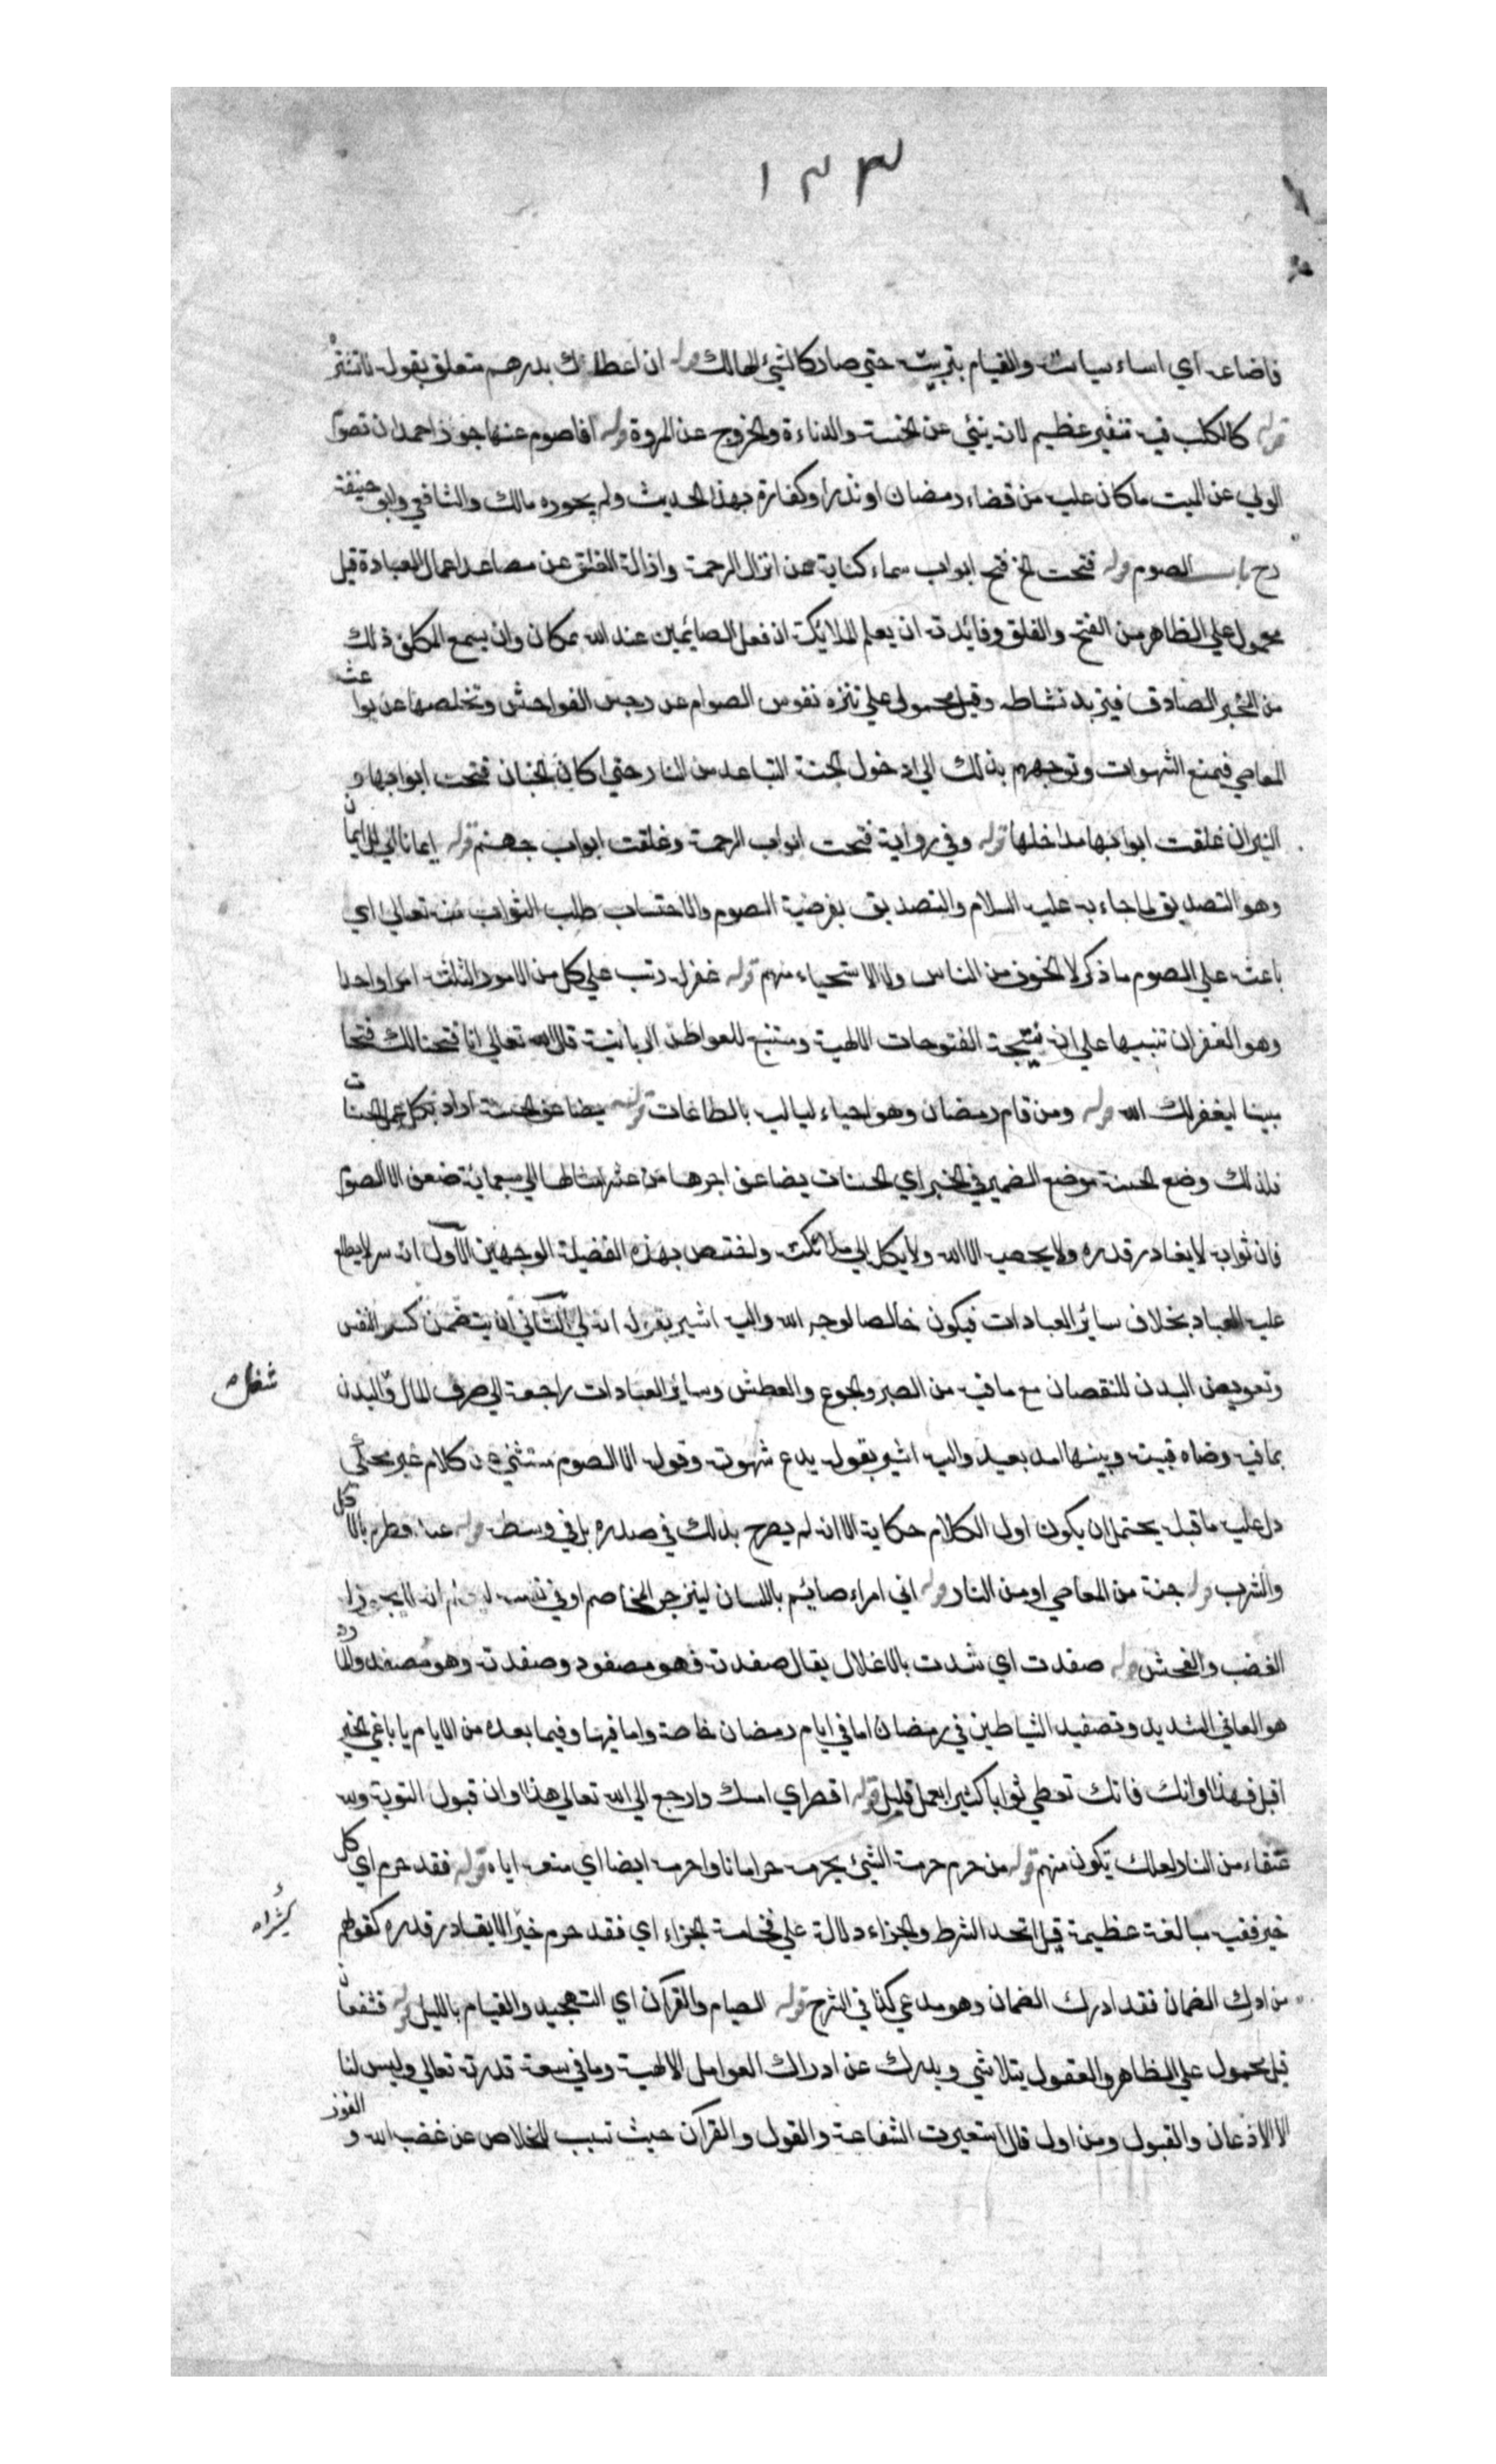 ١٣٣
فاضاعه اي اساء سياسته والقيام بتربيته حتي صار كالشيئ الهالك قوله ان اعطاك بدرهم متعلق بقوله لا تشتره
قوله كالكلب فيه تنفير عظيم لانه ينبئ عن الخسة والدناءة والخروج عن المروة قوله افاصوم عنها جوز احمد ان تصوم
الولي عن الميت ما كان عليه من قضاء رمضان او نذرا وكفارة بهذا الحديث ولم يجوزه مالك والشافعي وابو حنيفة
رح باب الصوم قوله فتحت الخ فتح ابواب سماء كناية عن انزال الرحمة وازالة الغلق عن مصاعد اعمال العبادة قيل
محمول علي الظاهر من الفتح والغلق وفائدته ان يعلم الملائكة ان فعل الصائمين عند الله بمكان وان يسمع المكلف ذلك
من المخبر الصادق فيزيد نشاطه وقيل محمول علي تنزه نفوس الصوام عن رجس الفواحش وتخلصها عن بواعث
المعاصي فيمنع الشهوات وتوجههم بذلك الي ادخول الجنة التباعد من النار حتي كان الجنان فتحت ابوابها و
النيران غلقت ابوابها مداخلها قوله وفي رواية فتحت ابواب الرحمة وغلقت ابواب جهنم قوله ايمانا اي للايمان
وهو التصديق لما جاء به عليه السلام والتصديق بفرضية الصوم والاحتساب طلب الثواب منه تعالي اي
باعثه علي الصوم ما ذكر لا الخوف من الناس ولا الاستحياء منهم قوله غفر له رتب علي كل من الامور الثلثة امرا واحدا
وهو الغفران تنبيها علي انه نتيجة الفتوحات الالهية ومستتبع للعواطف الربانية قال الله تعالي انا فتحنا لك فتحا
مبينا ليغفر لك الله قوله ومن قام رمضان وهو احياء لياليه بالطاعات قوله يضاعف الحسنة اراد بكل عمل الحسنات
فلذلك وضع الحسنة موضع الضمير في الخبر اي الحسنات يضاعف اجرها من عشر امثالها الي سبعمائة ضعف الا الصوم
فان ثوابه لا يغادر قدره ولا يحصيه الا الله ولا يكل الي ملائكته ولختص بهذه الفضيلة الوجهين الاول انه سر لا يطلع
عليه العباد بخلاف سائر العبادات فيكون خالصا لوجه الله واليه اشير بقوله انه لي الثاني انه يتضمن كسر النفس
وتعويض البدن للنقصان مع ما فيه من الصبر والجوع والعطش وسائر العبادات راجعة الي صرف المال وشغل البدن
بما فيه رضاه فبينه وبينها امد بعيد واليه اشير بقوله يدع شهوته وقوله الا الصوم مستثني عن كلام غير محكي
دل عليه ما قبله يحتمل ان يكون اول الكلام حكاية الا انه لم يصرح بذلك في صدره بل في وسطه قوله عند فطره بالاكل
والشرب قوله جنة من المعاصي او من النار قوله اني امراء صائم باللسان لينزجر المخاصم او في نفسه ليعلم انه لا يجوز له
الغضب والفحش قوله صفدت اي شدت بالاغلال يقال صفدته فهو مصفود وصفدته وهو مصفد والمارد
هو العاتي الشديد وتصفيد الشياطين في رمضان اما في ايام رمضان خاصة واما فيها وفيما بعده من الايام يا باغي الخير
اقبل فهذا اوانك فانك تعطي ثوابا كثيرا بعمل قليل قوله اقصر اي امسك وارجع الي الله تعالي هذا اوان قبول التوبة ولله
عتقاء من النار لعلك تكون منهم قوله من حرم حرمة الشيئ يحرمه حرمانا واحرمه ايضا اي منعه اياه قوله فقد حرم اي كل
خير ففيه مبالغة عظيمة قيل اتحد الشرط والجزاء دلالة علي فخامة الجزاء اي فقد حرم خيرا لا يقادر قدره كقولهم
من ادرك الضمان فقد ادرك الضمان وهو مدعي كذا في الشرح قوله الصيام والقرآن اي التهجيد والقيام بالليل قوله فشفعان
قيل محمول علي الظاهر والعقول يتلاشي ويدرك عن ادراك العوامل الالهية وما في سعة قدرته تعالي وليس لنا
الا الاذعان والقبول ومن اول قال استعيرت الشفاعة والقول والقرآن حيث تسبب للخلاص عن غضب الله و الفوز